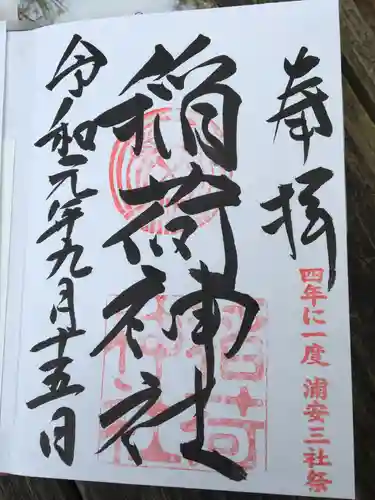 奉拝
四年に一度 浦安三社祭
稲荷神社
令和元年九月十五日